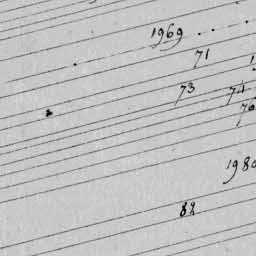 1969 . . .
71
73 74
76
1980
82